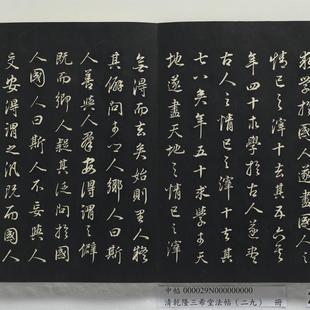 求學於國人遂盡國人之
情己之滓十去其五六矣
年四十求學於古人遂盡
古人之情己之滓十去其
七八矣年五十求學於天
地遂盡天地之情己之滓
無得而去矣始則里人疑
其僻問於鄉人鄉人曰斯
人善與人羣安得謂之僻
既而鄉人疑其泛問於國
人國人曰斯人不妄與人
交安得謂之汎既而國人
中帖 000029N000000000
清乾隆三希堂法帖(二九) 冊